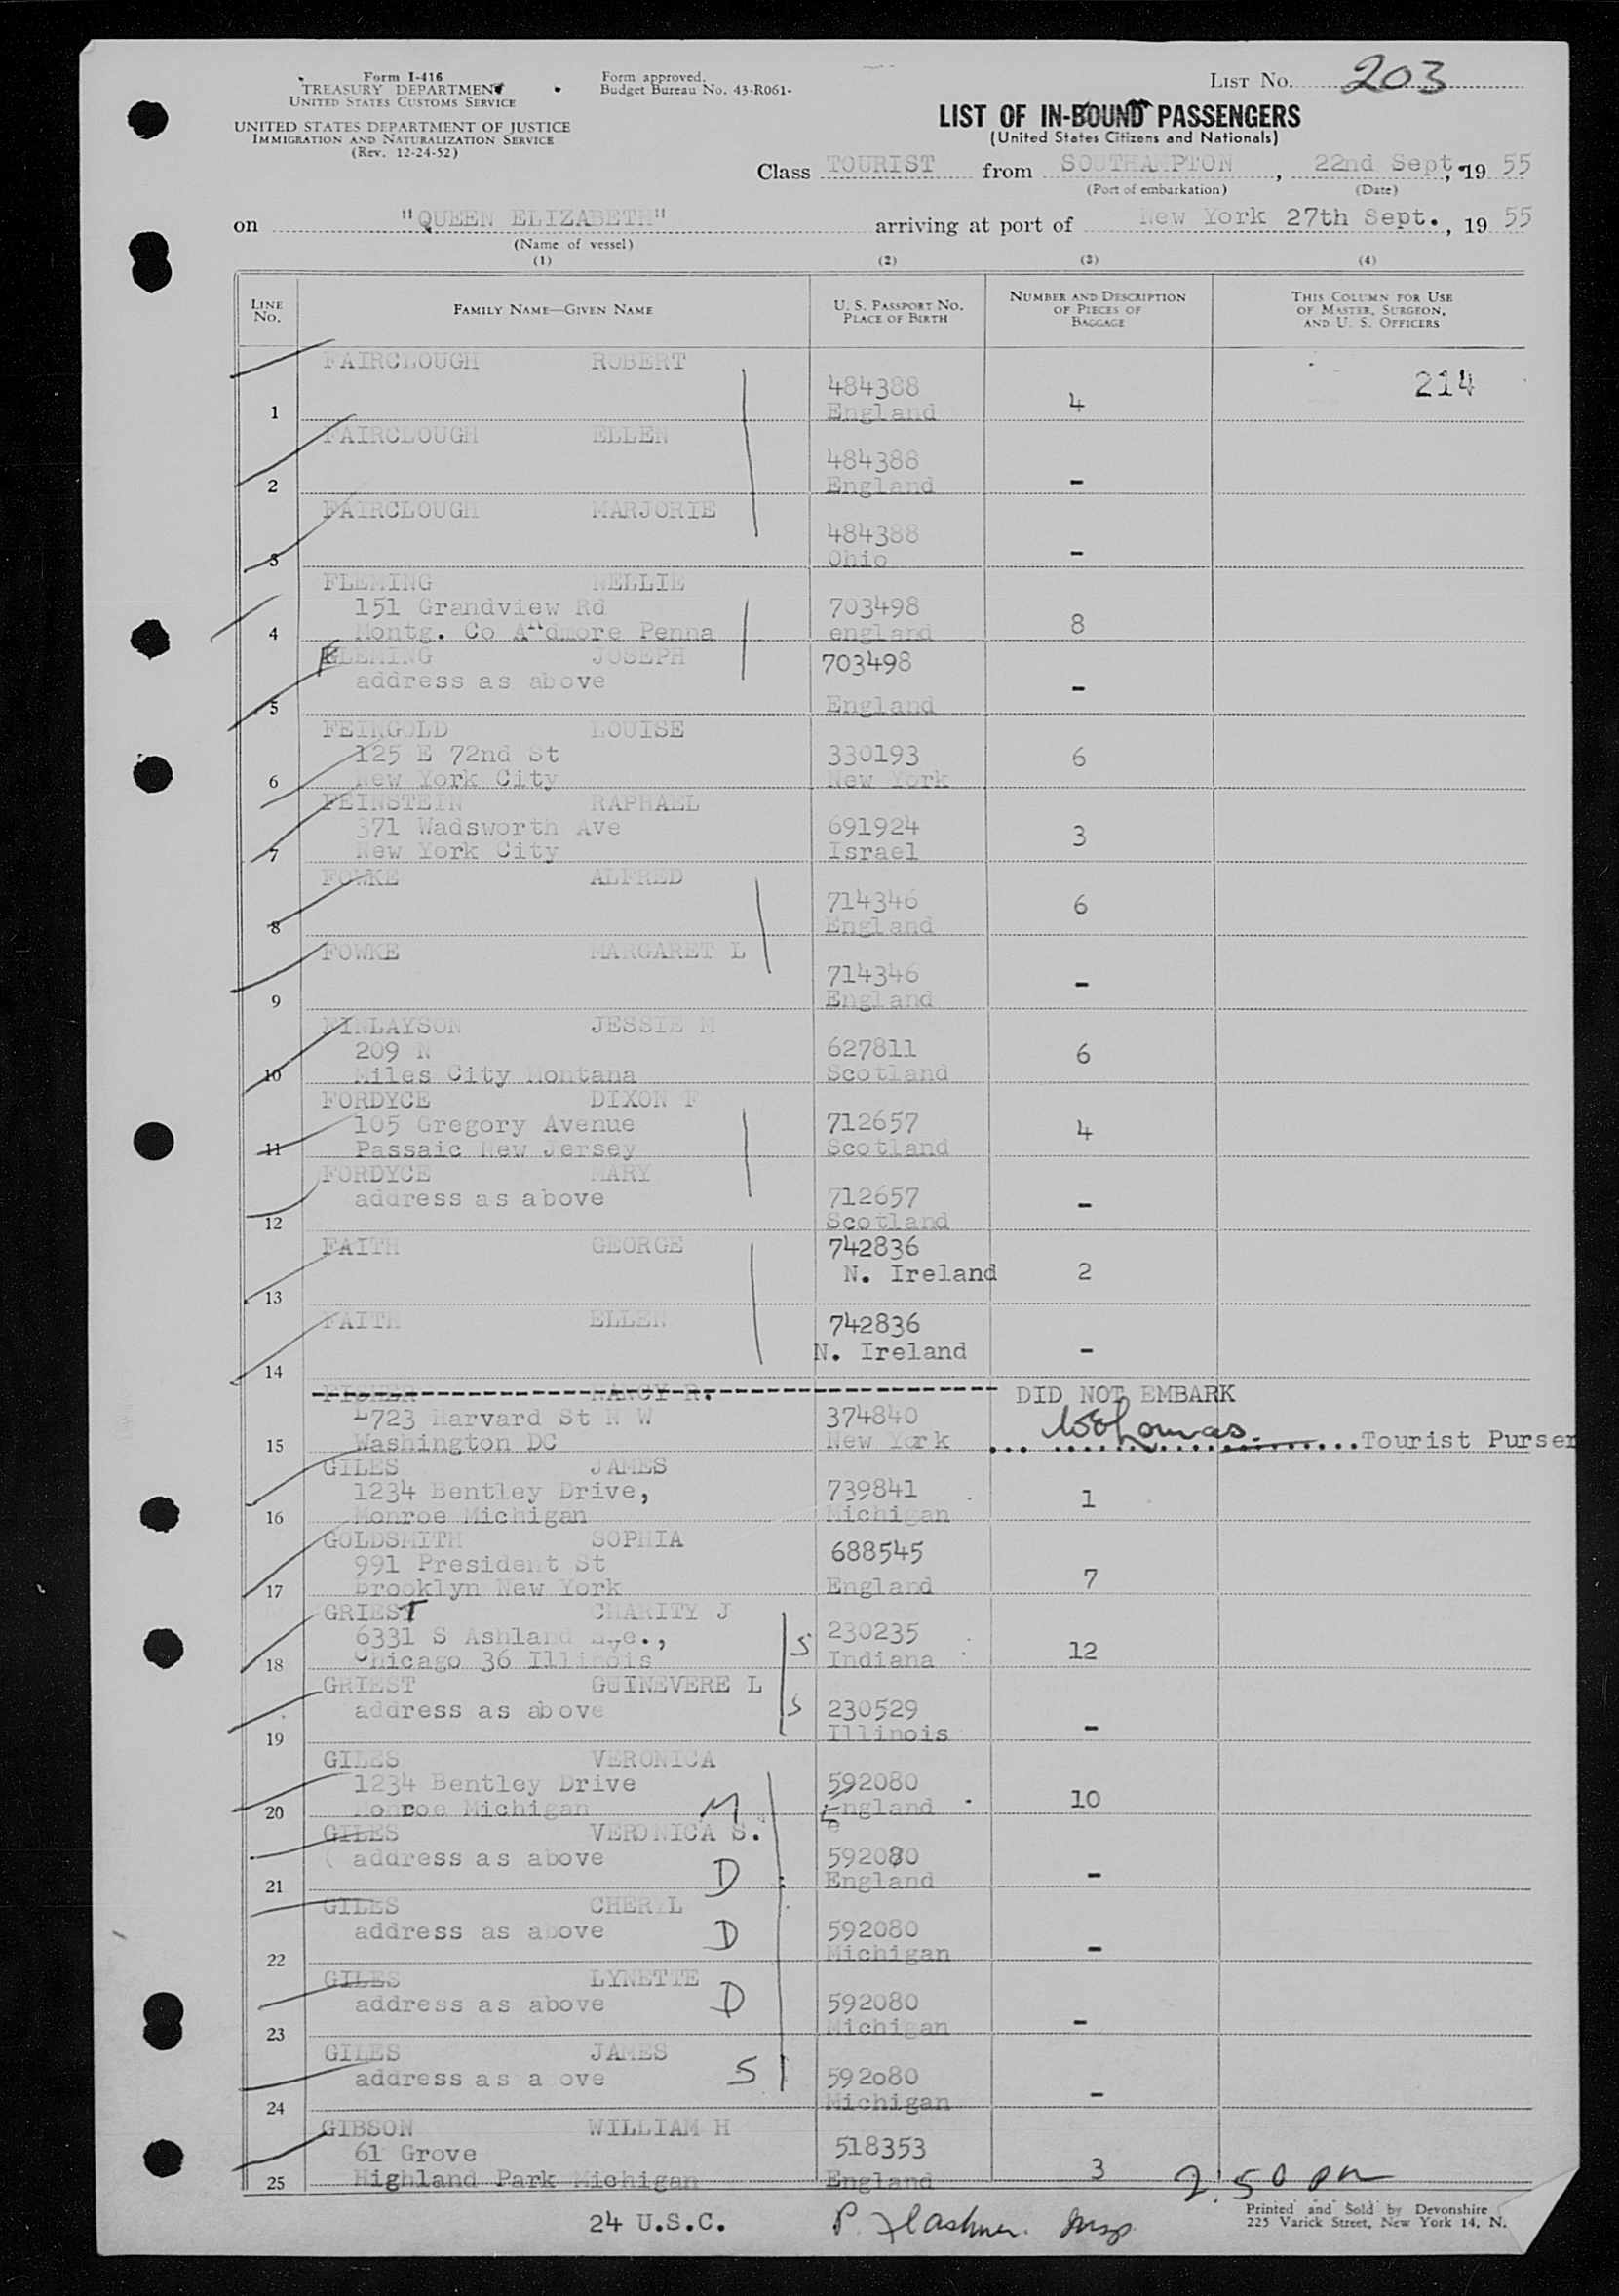 Form I-416
TREASURY DEPARTMENT
UNITED STATES CUSTOMS SERVICE
UNITED STATES DEPARTMENT OF JUSTICE
IMMIGRATION AND NATURALIZATION SERVICE
(Rev. 12-24-52)
Form approved.
Budget Bureau No. 43-R061-
LIST NO. 203
LIST OF IN-BOUND PASSENGERS
(United States Citizens and Nationals)
Class TOURIST from SOUTHAMPTON, 22nd Sept, 19 55
(Port of embarkation) (Date)
on "QUEEN ELIZABETH" arriving at port of New York 27th Sept., 19 55
(Name of vessel)
(1) (2) (3) (4)
LINE NO. FAMILY NAME—GIVEN NAME U. S. PASSPORT NO. PLACE OF BIRTH NUMBER AND DESCRIPTION OF PIECES OF BAGGAGE THIS COLUMN FOR USE OF MASTER, SURGEON, AND U. S. OFFICERS
FAIRCLOUGH ROBERT
484388 214
1 England 4
FAIRCLOUGH ELLEN
484388
2 England -
FAIRCLOUGH MARJORIE
484388
3 Ohio -
FLEMING NELLIE
151 Grandview Rd 703498
4 Montg. Co Ardmore Penna england 8
FLEMING JOSEPH 703498
address as above -
5 England
FEINGOLD LOUISE
125 E 72nd St 330193 6
6 New York City New York
FEINSTEIN RAPHAEL
371 Wadsworth Ave 691924 3
7 New York City Israel
FOWKE ALFRED
714346 6
8 England
FOWKE MARGARET L
714346 -
9 England
FINLAYSON JESSIE M
209 N 627811 6
10 Miles City Montana Scotland
FORDYCE DIXON F
105 Gregory Avenue 712657 4
11 Passaic New Jersey Scotland
FORDYCE MARY
address as above 712657 -
12 Scotland
FAITH GEORGE 742836
N. Ireland 2
13
FAITH ELLEN 742836
N. Ireland -
14
FISHER NANCY R. DID NOT EMBARK
1723 Harvard St N W 374840
15 Washington DC New York Tourist Purser
GILES JAMES
1234 Bentley Drive, 739841 1
16 Monroe Michigan Michigan
GOLDSMITH SOPHIA
991 President St 688545
17 Brooklyn New York England 7
GRIEST CHARITY J
6331 S Ashland Ave., S 230235
18 Chicago 36 Illinois Indiana 12
GRIEST GUINEVERE L
address as above S 230529
19 Illinois -
GILES VERONICA
1234 Bentley Drive 592080
20 Monroe Michigan M England 10
GILES VERONICA S.
address as above D 592080
21 England -
GILES CHERYL
address as above D 592080
22 Michigan -
GILES LYNETTE
address as above D 592080
23 Michigan -
GILES JAMES
address as a ove S 592080
24 Michigan -
GIBSON WILLIAM H
61 Grove 518353
25 Highland Park Michigan England 3 2.50 pm
24 U.S.C. P. Flashner. Insp.
Printed and Sold by Devonshire
225 Varick Street, New York 14, N.